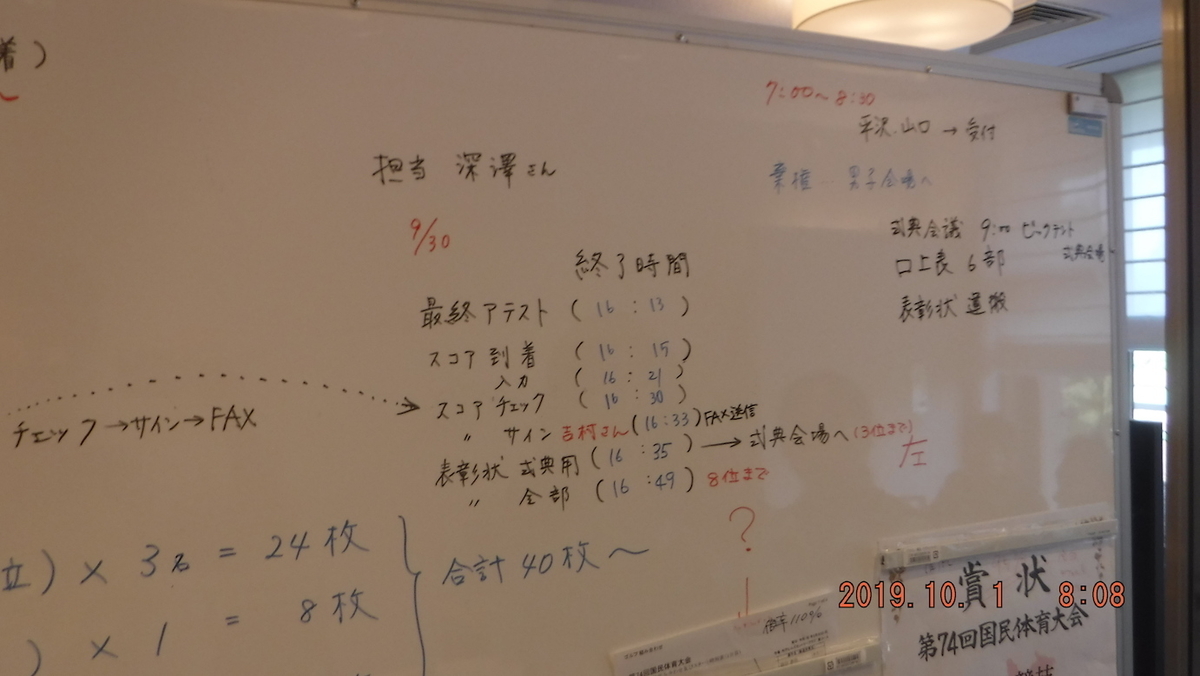 着)
7:00~8:30
平沢.山口 → 受付
担当 深澤さん
男子会場へ
9/30
式典会議 9:00 ビックテント
式典会場
口上表 6部
表彰状 運搬
終了時間
最終アテスト (16:13)
スコア到着 (16:15)
入力 (16:21)
チェック→サイン→FAX
スコアチェック (16:30)
〃 サイン 吉村さん(16:33)FAX送信
表彰状 式典用 (16:35) → 式典会場へ(3位まで)
〃 全部 (16:49) 8位まで
立) × 3名 = 24枚
) × 1 = 8枚
合計40枚~
?
第74回国民体育大会
賞状
第74回国民体育大会
2019.10. 1 8:08